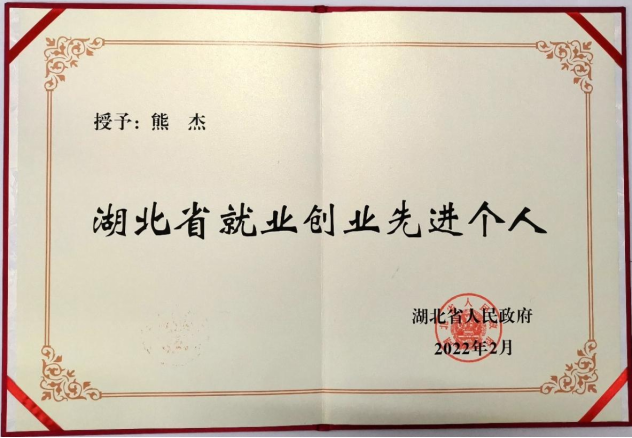 授予：熊 杰
湖北省就业创业先进个人
湖北省人民政府
2022年2月